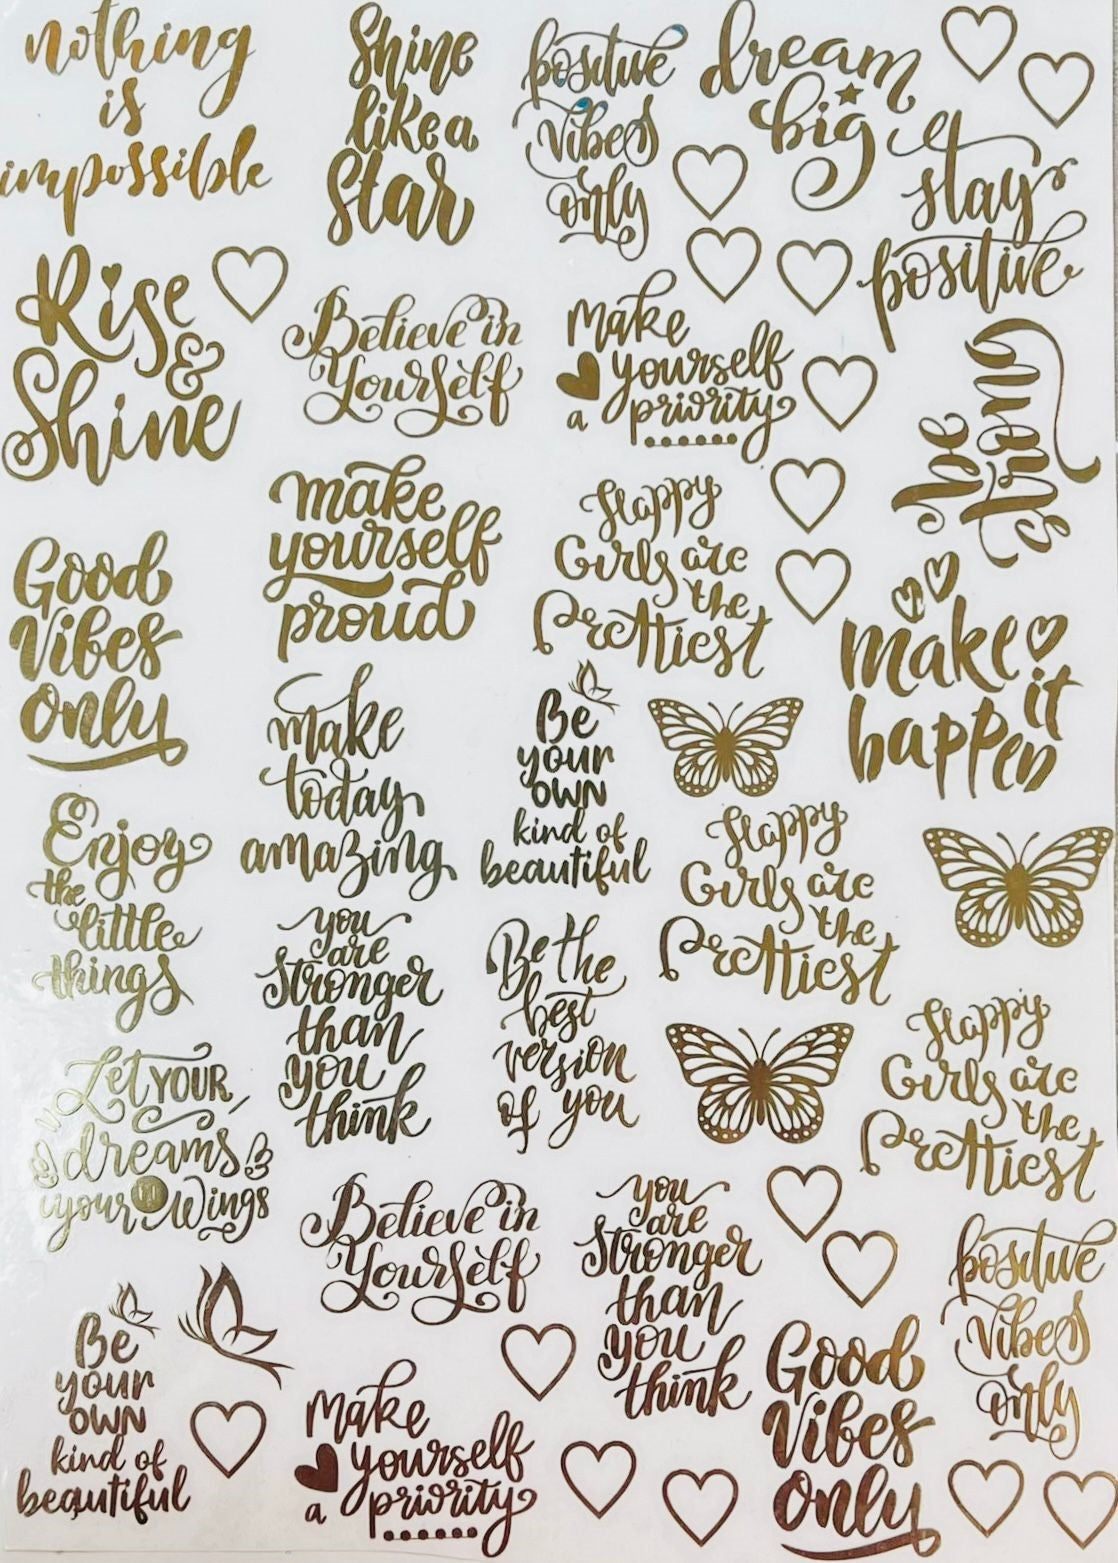 nothing
is
impossible
Shine
like a
Star
positive
vibes
only
dream
big
stay
positive
Rise
&
Shine
Believe in
Yourself
Make
yourself
a priority
be
strong
Good
Vibes
Only
make
yourself
proud
Happy
Girls are
the
Prettiest
make it
happen
make
today
amazing
Be
your
OWN
kind of
beautiful
Enjoy
the
little
things
you
are
stronger
than
you
think
Be the
best
version
of you
Happy
Girls are
the
Prettiest
Happy
Girls are
the
Prettiest
Let YOUR
dreams
be
your Wings
Believe in
Yourself
you
are
stronger
than
you
think
positive
vibes
only
Be
your
OWN
kind of
beautiful
Make
yourself
a priority
Good
Vibes
Only